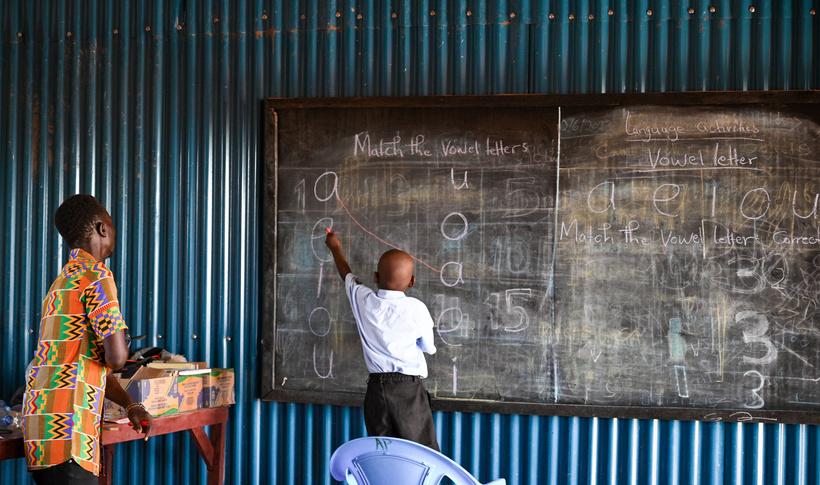 Match the Vowel letters
a u
e o
i a
o e
u i
5
Language activities
Vowel letter
a e i o u
Match the Vowel letter Correct
3
3
3
AP